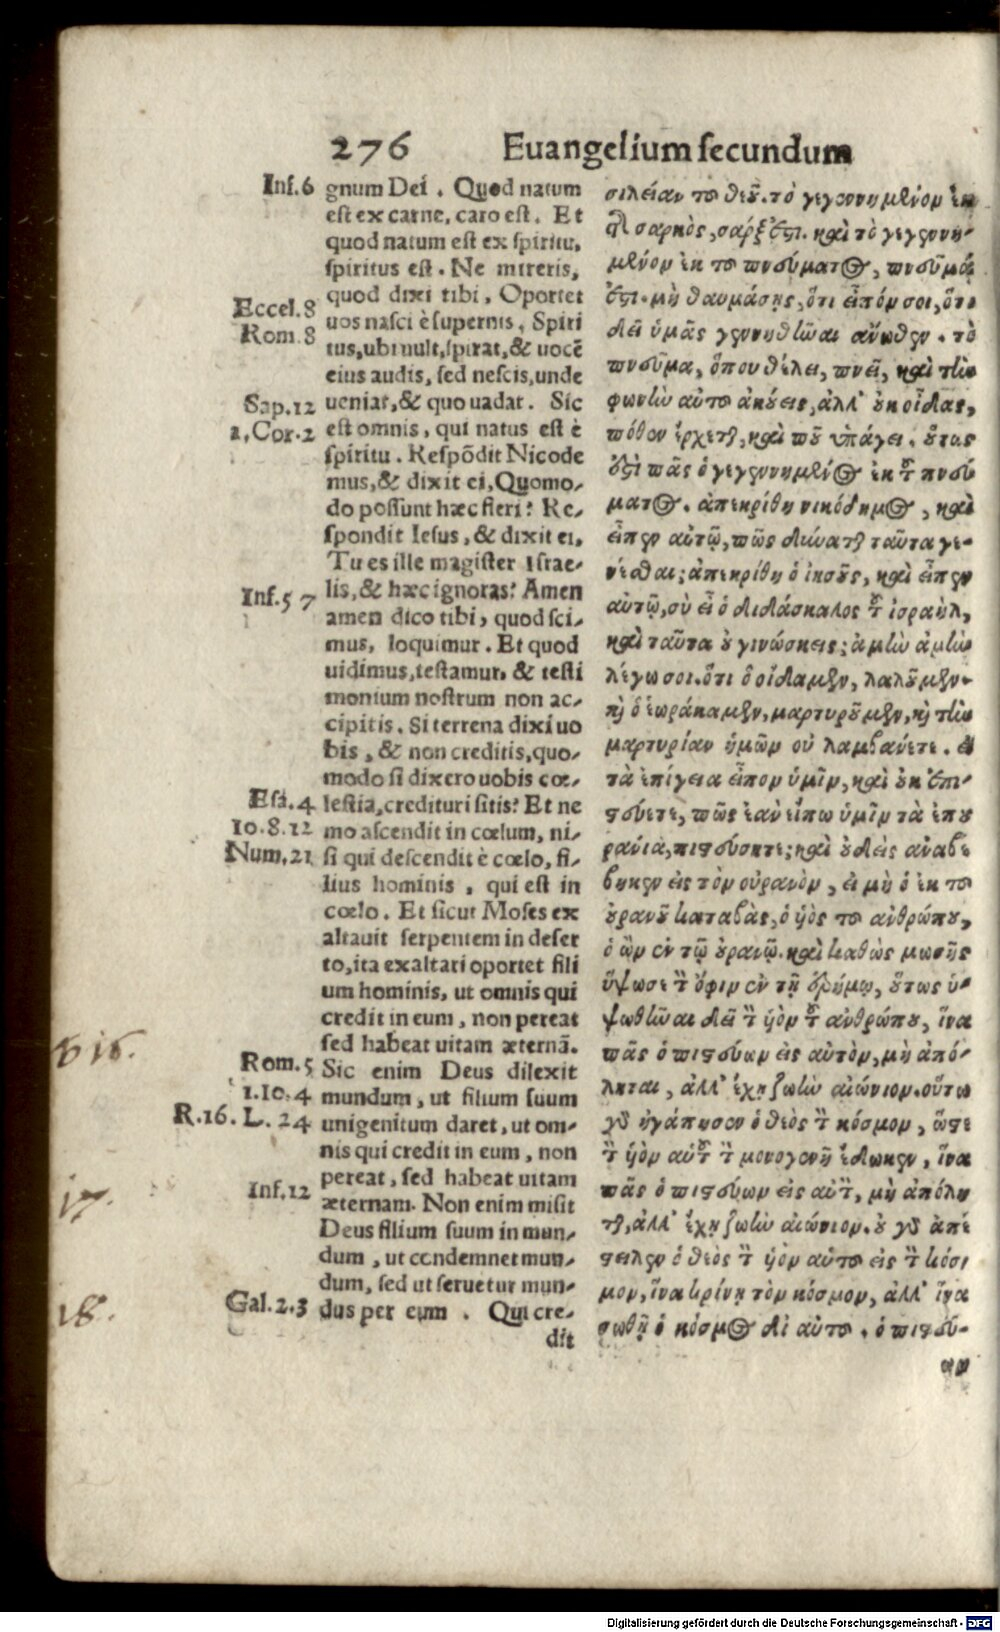 276 Euangelium ſecundum
Inf. 6
Eccel. 8
Rom. 8
Sap. 12
1. Cor. 2
Inf. 5 7
Eſa. 4
Io. 8. 12
Num. 21
Rom. 5
1. Io. 4
R. 16. L. 24
Inf. 12
Gal. 2. 3
16.
17.
18.
gnum Dei. Quod natum
eſt ex carne, caro eſt. Et
quod natum eſt ex ſpiritu,
ſpiritus eſt. Ne mireris,
quod dixi tibi, Oportet
uos naſci è ſupernis. Spiri
tus, ubi uult, ſpirat, & uocē
eius audis, ſed neſcis, unde
ueniat, & quo uadat. Sic
eſt omnis, qui natus eſt è
ſpiritu. Reſpōdit Nicode
mus, & dixit ei, Quomo-
do poſſunt hæc fieri? Re-
ſpondit Ieſus, & dixit ei,
Tu es ille magiſter Iſrae-
lis, & hæc ignoras? Amen
amen dico tibi, quod ſci-
mus, loquimur. Et quod
uidimus, teſtamur, & teſti
monium noſtrum non ac-
cipitis. Si terrena dixi uo
bis, & non creditis, quo-
modo ſi dixero uobis cœ-
leſtia, credituri ſitis? Et ne
mo aſcendit in cœlum, ni-
ſi qui deſcendit è cœlo, fi-
lius hominis, qui eſt in
cœlo. Et ſicut Moſes ex
altauit ſerpentem in deſer
to, ita exaltari oportet fili
um hominis, ut omnis qui
credit in eum, non pereat
ſed habeat uitam æternā.
Sic enim Deus dilexit
mundum, ut filium ſuum
unigenitum daret, ut om-
nis qui credit in eum, non
pereat, ſed habeat uitam
æternam. Non enim miſit
Deus filium ſuum in mun-
dum, ut condemnet mun-
dum, ſed ut ſeruetur mun-
dus per eum. Qui cre-
dit
σιλείαν τοῦ θεοῦ. τὸ γεγεννημένον ἐκ
τῆς σαρκὸς, σάρξ ἐστι. καὶ τὸ γεγεννη-
μένον ἐκ τοῦ πνεύματος, πνεῦμά
ἐστι. μὴ θαυμάσῃς, ὅτι εἶπόν σοι, ὅτι
δεῖ ὑμᾶς γεννηθῆναι ἄνωθεν. τὸ
πνεῦμα, ὅπου θέλει, πνεῖ, καὶ τὴν
φωνὴν αὐτοῦ ἀκούεις, ἀλλ' οὐκ οἶδας,
πόθεν ἔρχεται, καὶ ποῦ ὑπάγει. οὕτως
ἐστὶ πᾶς ὁ γεγεννημένος ἐκ τοῦ πνεύ
ματος. ἀπεκρίθη νικόδημος, καὶ
εἶπεν αὐτῷ, πῶς δύναται ταῦτα γε-
νέσθαι; ἀπεκρίθη ὁ ἰησοῦς, καὶ εἶπεν
αὐτῷ, σὺ εἶ ὁ διδάσκαλος τοῦ ἰσραὴλ,
καὶ ταῦτα οὐ γινώσκεις; ἀμὴν ἀμὴν
λέγω σοι. ὅτι ὃ οἴδαμεν, λαλοῦμεν.
καὶ ὃ ἑωράκαμεν, μαρτυροῦμεν, καὶ τὴν
μαρτυρίαν ἡμῶν οὐ λαμβάνετε. εἰ
τὰ ἐπίγεια εἶπον ὑμῖν, καὶ οὐκ ἐπι-
στεύετε, πῶς ἐὰν εἴπω ὑμῖν τὰ ἐπου
ράνια, πιστεύσητε; καὶ οὐδεὶς ἀναβέ
βηκεν εἰς τὸν οὐρανὸν, εἰ μὴ ὁ ἐκ τοῦ
οὐρανοῦ καταβὰς, ὁ ὑὸς τοῦ ἀνθρώπου,
ὁ ὢν ἐν τῷ οὐρανῷ. καὶ καθὼς μωσῆς
ὕψωσε τὸν ὄφιν ἐν τῇ ἐρήμῳ, οὕτως ὑ-
ψωθῆναι δεῖ τὸν ὑὸν τοῦ ἀνθρώπου, ἵνα
πᾶς ὁ πιστεύων εἰς αὐτὸν, μὴ ἀπό-
ληται, ἀλλ' ἔχῃ ζωὴν αἰώνιον. οὕτω
γὰρ ἠγάπησεν ὁ θεὸς τὸν κόσμον, ὥστε
τὸν ὑὸν αὐτοῦ τὸν μονογενῆ ἔδωκεν, ἵνα
πᾶς ὁ πιστεύων εἰς αὐτὸν, μὴ ἀπόλη
ται, ἀλλ' ἔχῃ ζωὴν αἰώνιον. οὐ γὰρ ἀπέ
στειλεν ὁ θεὸς τὸν ὑὸν αὐτοῦ εἰς τὸν κόσ
μον, ἵνα κρίνῃ τὸν κόσμον, ἀλλ' ἵνα
σωθῇ ὁ κόσμος δι' αὐτοῦ. ὁ πιστεύ-
ων
Digitalisierung gefördert durch die Deutsche Forschungsgemeinschaft - DFG